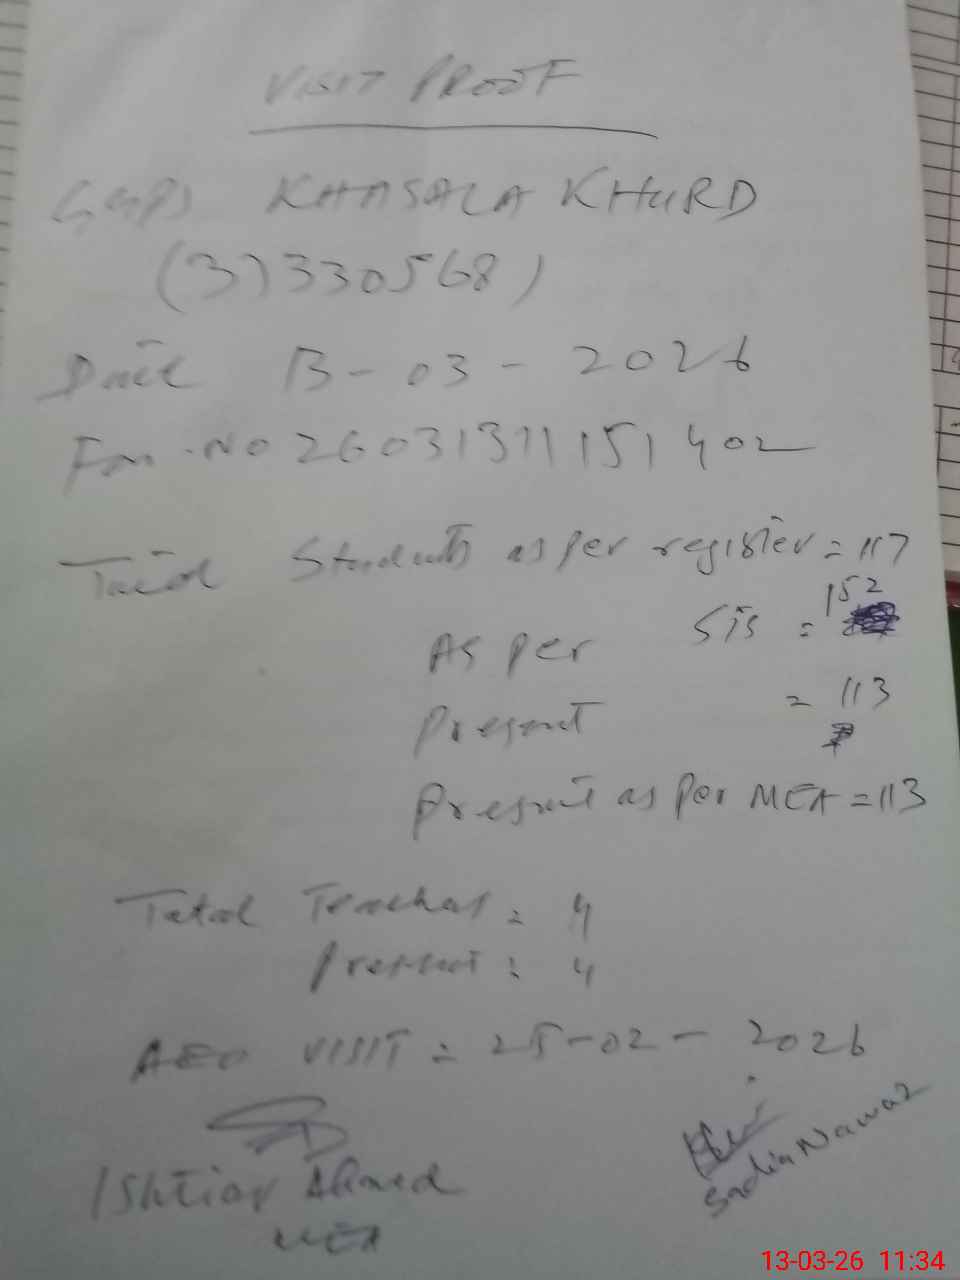 VISIT PROOF
GGPS KHASALA KHURD
(37330568)
Date 13-03-2026
Fm.No 26031311151402
Total Students as per register = 117
As per SIS = 152
Present = 113
Present as per MEA = 113
Total Teacher = 4
Present = 4
AEO VISIT = 25-02-2026
Sadia Nawaz
Ishtiaq Ahmed
MEA
13-03-26 11:34